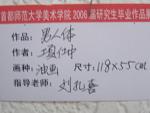 首都师范大学美术学院2006届研究生毕业作品展
作品：男人体
作者：
画种：油画 尺寸：118×55cm
指导老师：刘孔喜